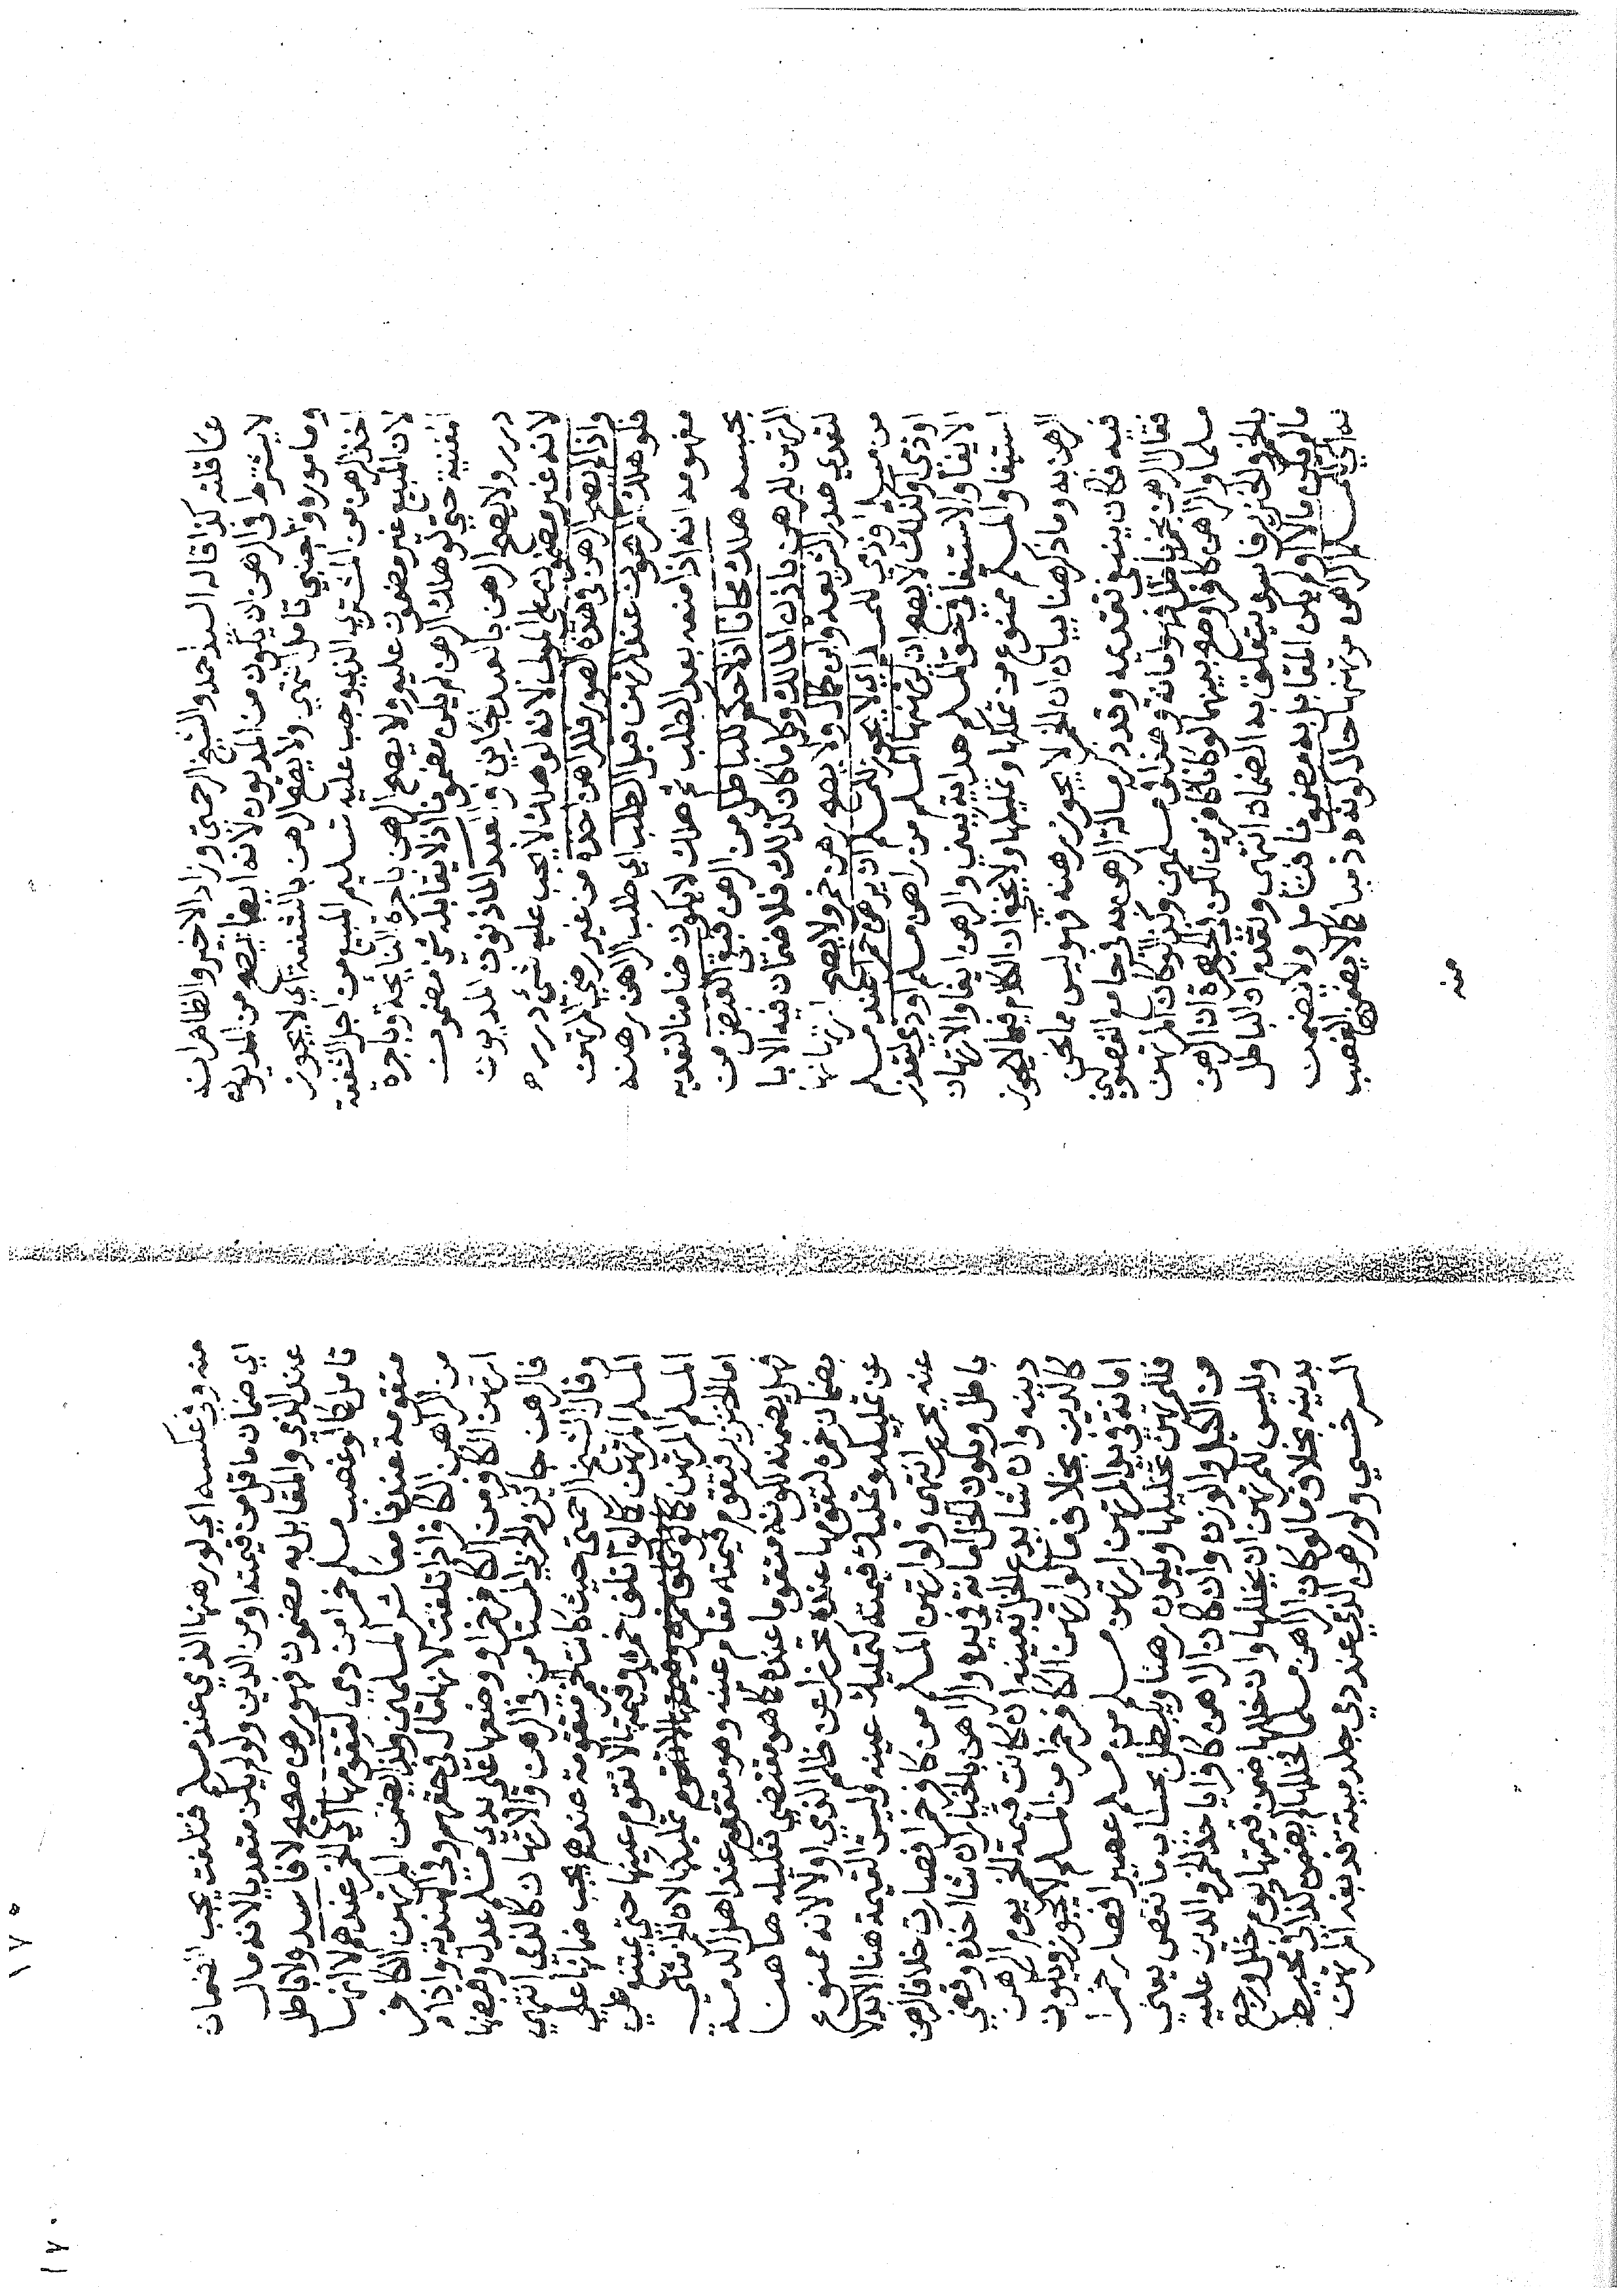 عاقلته كذا قاله السيد احمد والشيخ الرحمتي وزاد الاخير والظاهر انه
لا يشترط في الرهن ان يكون من المديون لانه ايضا يصح من المديون
وماموره واجنبي تامل انتهى ولا يصح الرهن بالشفعة اي لا يجوز
اخذ الرهن من المشتري الذي وجب عليه تسليم المبيع من اجل الشفعة
لان المبيع غير مضمون عليه ولا يصح الرهن باجرة النايحة وباجرة
المغنية حتى لو هلك الرهن لم يكن مضمونا اذ لا يقابله شي مضمون
درر ولا يصح الرهن بالعبد الجاني او العبد الماذون المديون
لانه غير مضمون على المولى لانه لو هلك لا يجب عليه شيء درر
واذا لم يصح الرهن في هذه الصور فللراهن اخذه من غير رضى المرتهن
فلو هلك المرهون عند المرتهن قبل الطلب اي طلب الراهن رهنه
مفهومه انه اذا منعه بعد الطلب ثم هلك يكون ضامنا لتعديه
بحبسه هلك مجانا اذ لا حكم للباطل من الرهن فبقي القبض من
المرتهن للرهن باذن المالك وكلما كان كذلك فلا ضمان فيه الا با
لتعدي صدر الشريعة وابن كمال ولا يصح رهن خمر ولا يصح ارتهانها
من مسلم او ذمي للمسلم اي لا يجوز للمسلم ان يرهن خمرا عند مسلم
او ذمي وكذلك لا يصح ان يرتهنها المسلم من راهن مسلم او ذمي لتعذر
الايفا والاستيفا في حق المسلم هداية يعني والرهن ايفا والارتهان
استيفا والمسلم ممنوع من تملكها وتمليكها ولا يخفى ان الكلام فيما لا يجوز
الرهن به وما ذكر هنا بيان ان الخمر لا يجوز رهنه فهو ليس مما نحن
فيه فكان ينبغي تقديمه وقد ذكر مسالة الرهن به في جامع الفصولين
فقال الرهن بخمر باطل فهو امانة وهذا في مسلمين وكذا لو كان المرتهن
مسلما والراهن كافرا وصح بينهما لو كانا كافرين لكن في الجوهرة ان الرهن
بالخمر والخنزير فاسد يتعلق به الضمان انتهى وتقدم ان الباطل
ما لم يكن مالا او لم يكن المقابل به مضمونا فتامل ولا يضمن
له اي للمسلم الراهن مرتهنها حال كونه ذميا كما لا يضمن بالغصب
منه
منه وفي عكسه اي لو رهنها الذمي عند مسلم فتلفت يجب الضمان
اي ضمان ما قل من قيمته او من الدين ولو لم يكن متعديا لانه مال
عند الذمي والمقابل به مضمون فهو رهن صحيح لا فاسد ولا باطل
تامل كما لو غصب مسلم خمرا من ذمي لتقومها اي الخمر عندهم لا انها
متقومة عندنا معاشر المسلمين ولذا يضمن المرتهن الكافر
من الراهن الكافر اذا تلفت لانها مال في حقهم وفي الهندية واذا
ارتهن الكافر من الكافر خمرا ووضعها على يدي مسلم عدل وقبضها
فالرهن جايز والحربي المستامن في الرهن والارتهان كالذمي انتهى
وقال الشيخ الرحمتي حيث كانت الخمر متقومة عندهم يجب ضمانها على
المسلم المرتهن كما لو اتلف خمره وقيمتها لا تقوم عينها حتى يمتنع على
المسلم المرتهن تمليكها لان الخمر مثلي
اما الخنزير فتقوم قيمته مقام عينه وهو متقوم عند اهل الذمة
فهل يضمنه لكونه متقوما عنده كما هو مقتضى تعليله هنا
بضمان خمره لتقومها عنده تحرزا عن ظلم الذمي او لا لانه ممنوع
عن تمليكه وتمليك قيمته كتمليك عينه وليس القيمة هنا الا بدلا
عنه يحرر انتهى ولو ارتهن المسلم من كافر خمرا فصارت خلا فالرهن
باطل ويكون الخل امانة في يده والراهن بالخيار ان شا اخذه وقضى
دينه وان شا يدع الخل بقيمته ان كانت قيمة الخمر يوم الرهن
كالدين بخلاف ما لو ارتهن الكافر خمرا من المسلم لا يجوز ويكون
امانة في يد المرتهن ارتهن مسلم من مسلم عصيرا فصار خمرا
فللمرتهن تخليلها ويكون رهنا ويبطل بحساب ما نقص يعني
من الكيل والوزن وان كان الراهن كافرا ياخذ الخمر والدين عليه
وليس للمرتهن ان يخللها وان خللها ضمن قيمتها يوم خلل ورجع
بدينه بخلاف ما لو كان الراهن مسلما فخللها لا يضمن كذا في محيط
السرخسي ولو رهن الذمي عند ذمي جلد ميتة فدبغه المرتهن
١٧٥
١٧٠